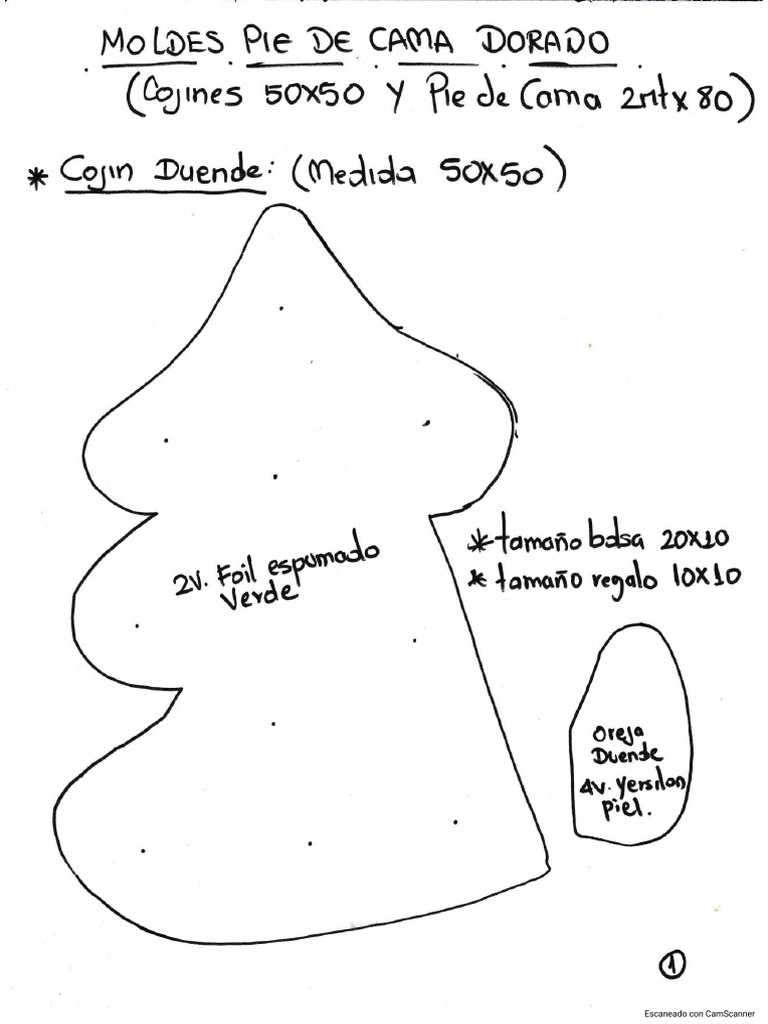 MOLDES PIE DE CAMA DORADO
(Cojines 50x50 y Pie de Cama 2mtx80)
* Cojin Duende: (Medida 50x50)
2v. Foil espumado
Verde
* tamaño bolsa 20x10
* tamaño regalo 10x10
Oreja
Duende
4v. Yersilon
piel.
1
Escaneado con CamScanner